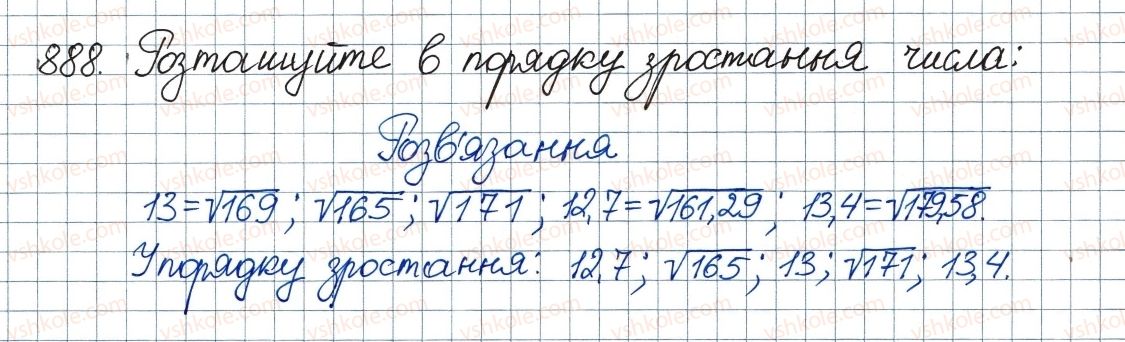 888. Розташуйте в порядку зростання числа:
Розв'язання
13=√169; √165; √171; 12,7=√161,29; 13,4=√179,58.
У порядку зростання: 12,7; √165; 13; √171; 13,4.